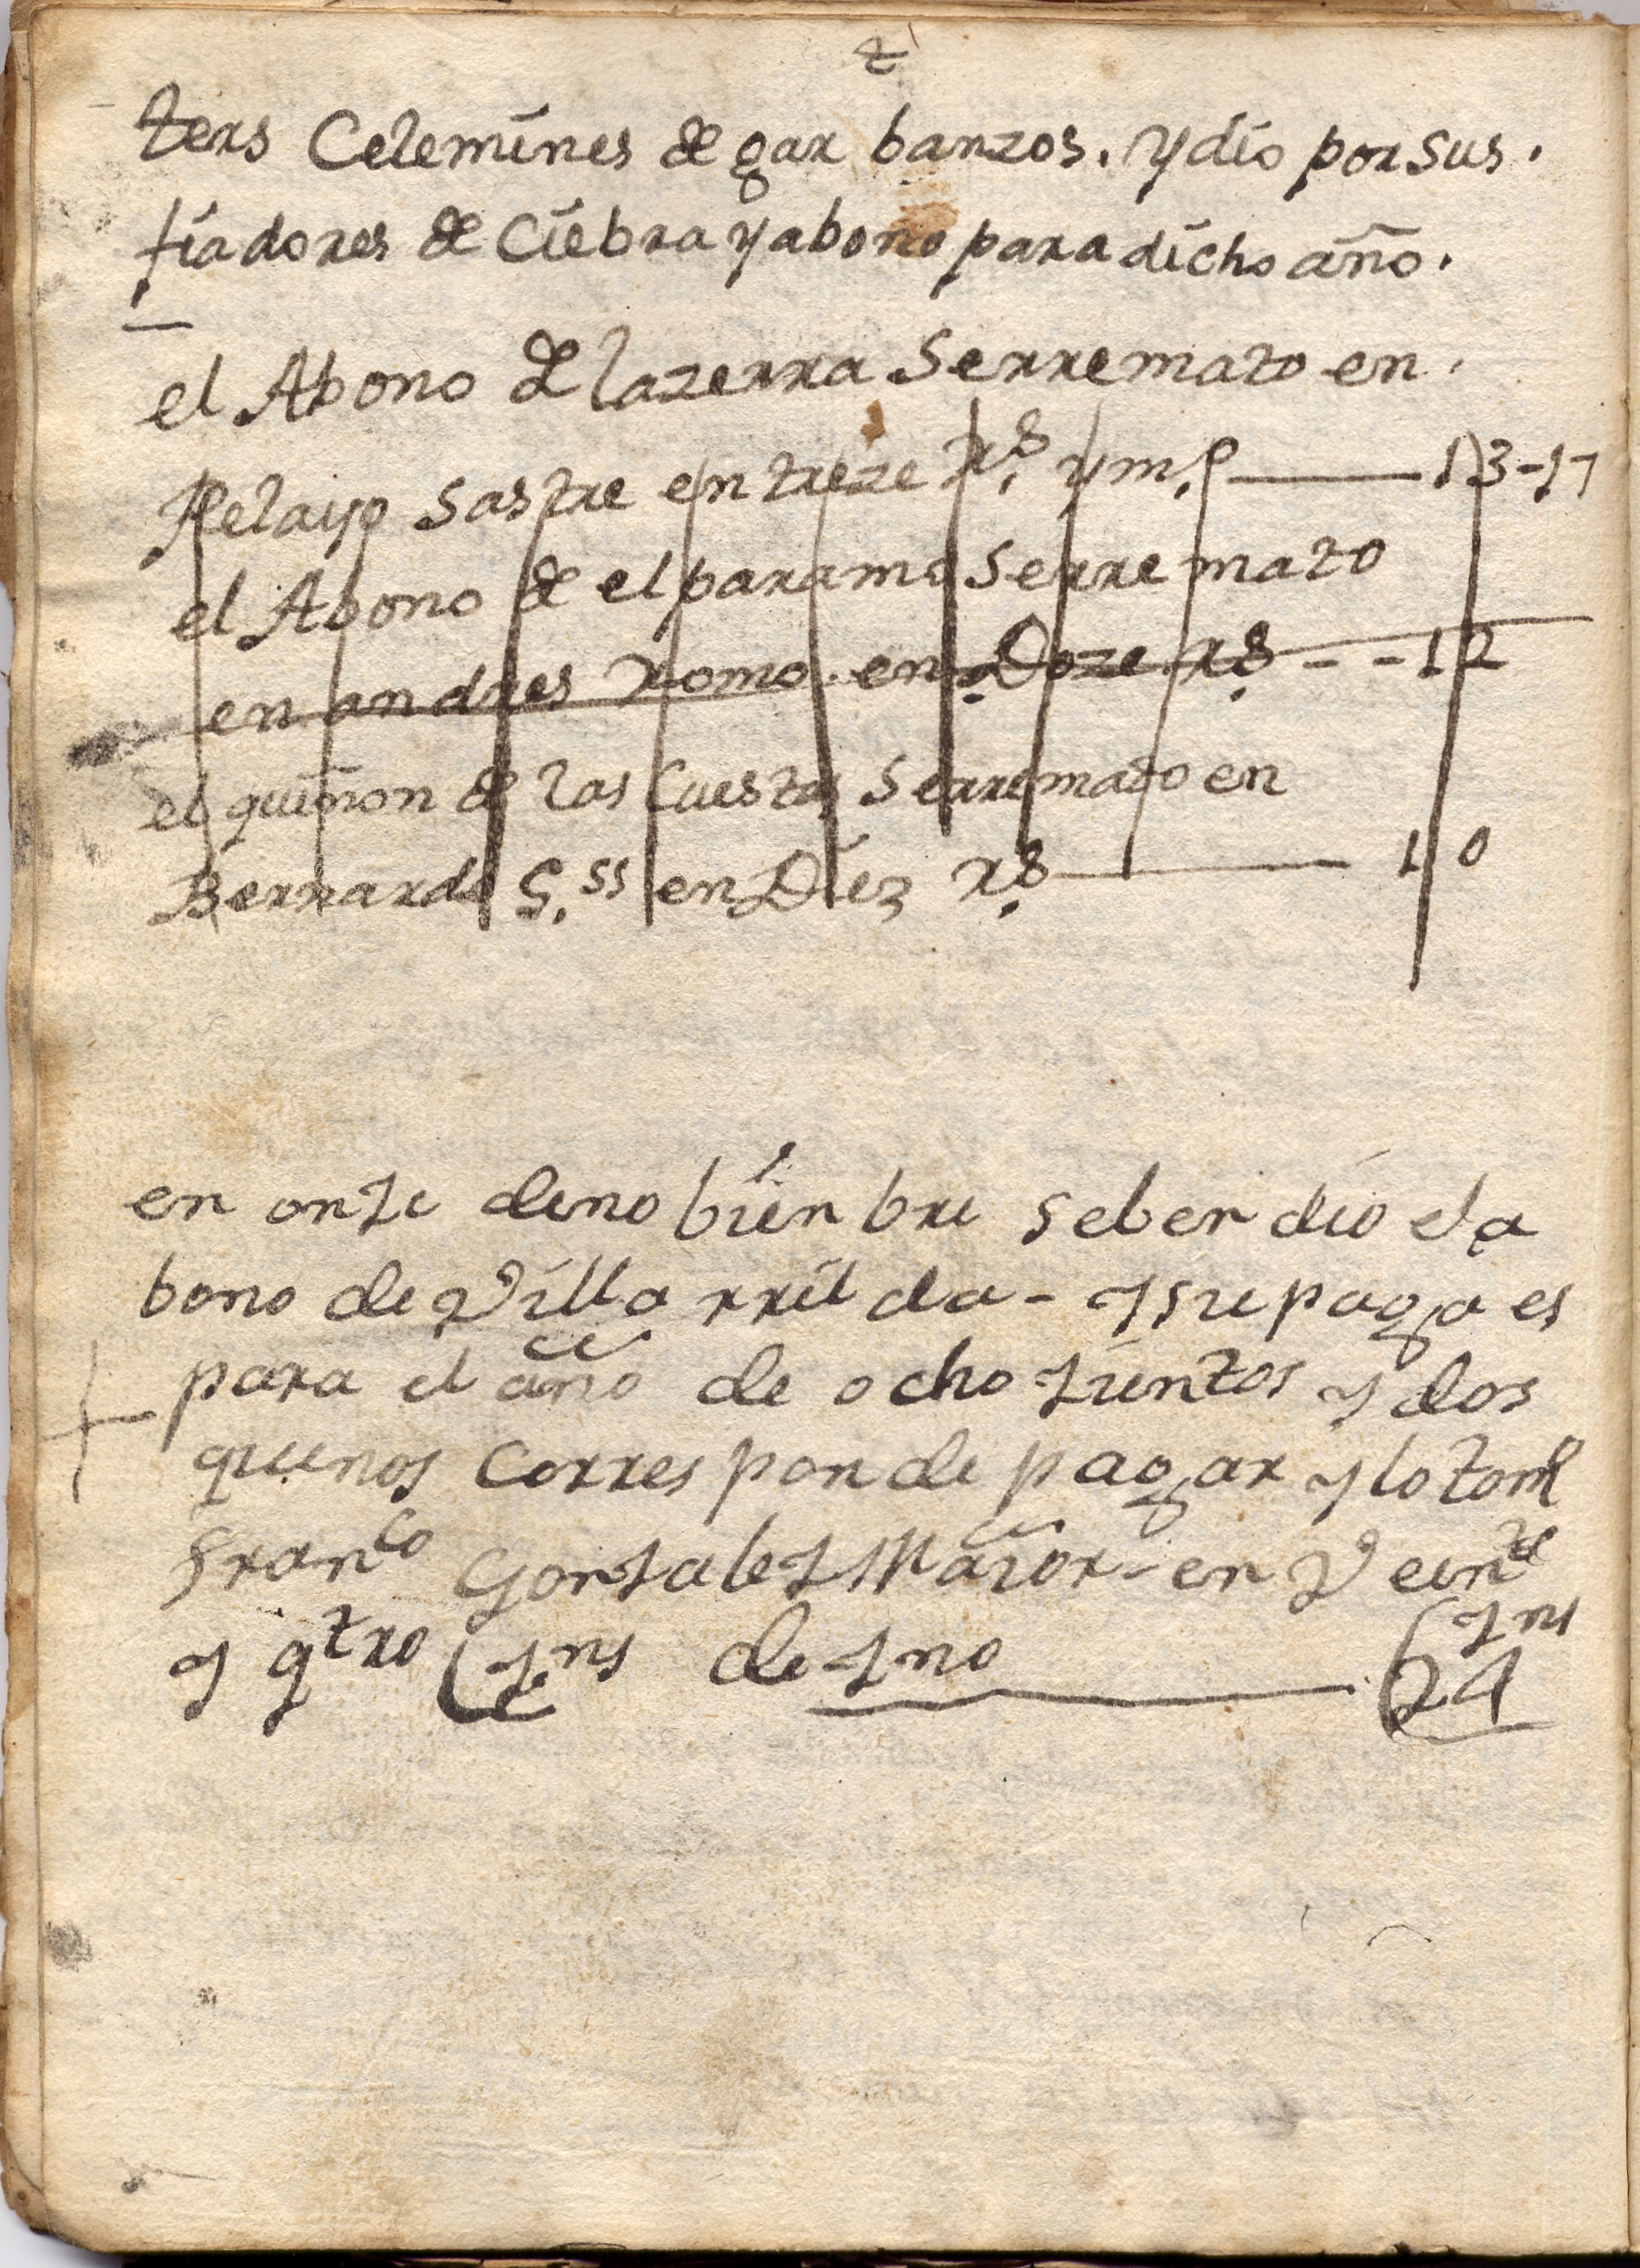 ters Celemines de gar banzos. y dio por sus.
fiadores de Ciebra y abono para dicho año.
el Abono de lazerra Serremato en.
Pelayo Sastre en treze Rs. y m.o 13-17
el Abono de el paramo Serremato
en andres Romo. en Doze Rs - - 12
el quiñon de las Cuestas Serremato en
Bernardo G.ss en Diez Rs 10
en onze de nobienbre seben dio el a
bono de Villa rril da - y su paga es
para el año de ocho zientos y dos
que nos Corres ponde pagar y lo tomo
Franco Gonzalez Maior - en Veinte
y qtro